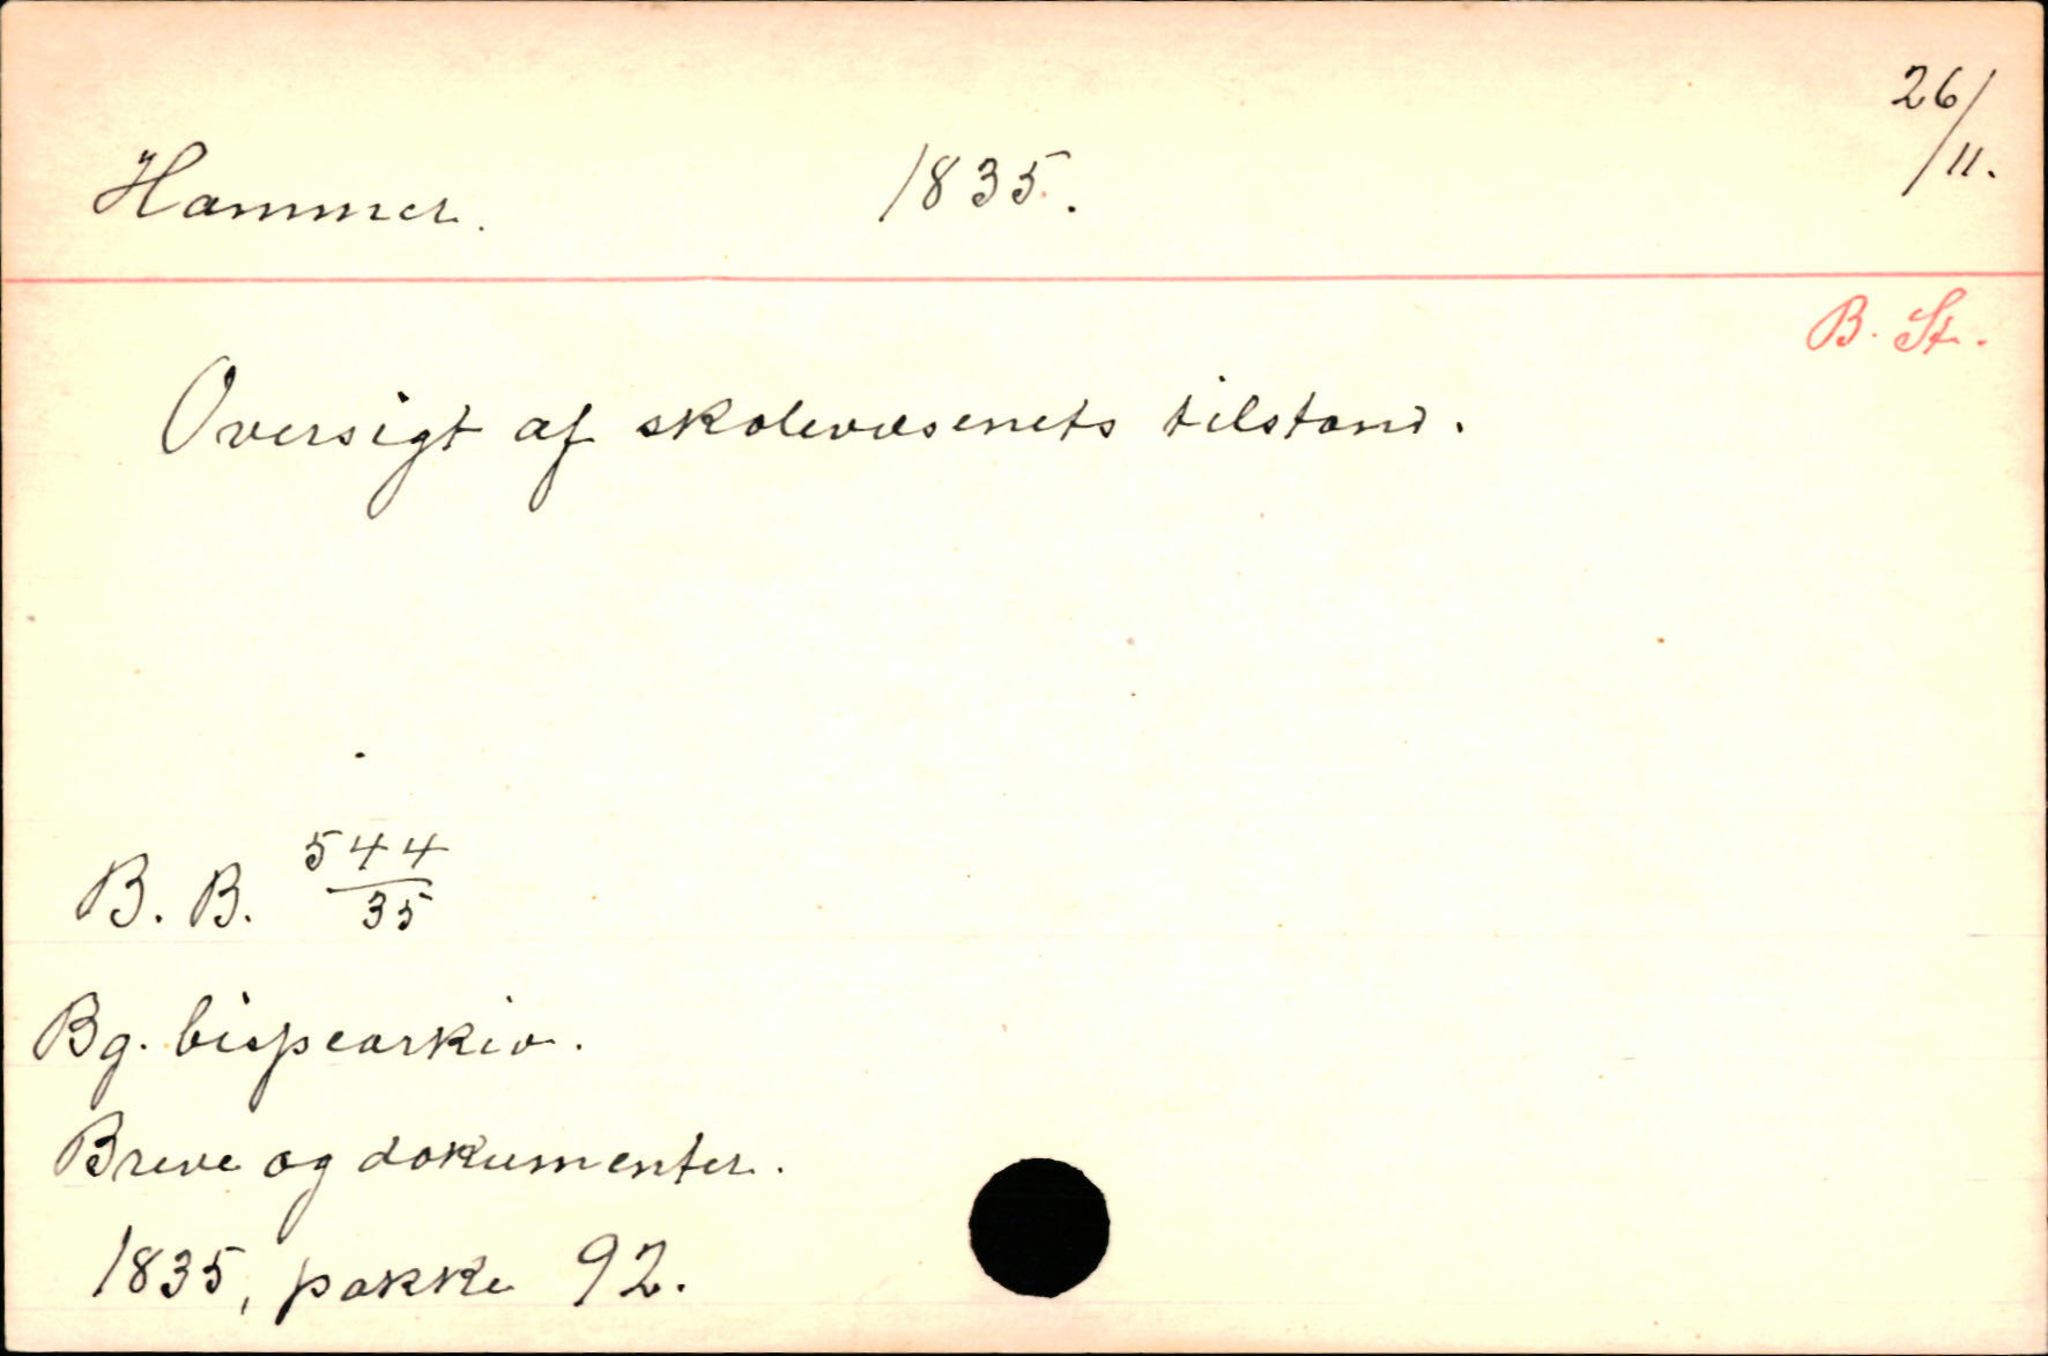 26/11.
Hammer. 1835.
B. St.
Oversigt af skolevæsenets tilstand.
B. B. 544/35
Bg. bispearkiv.
Breve og dokumenter.
1835, pakke 92.